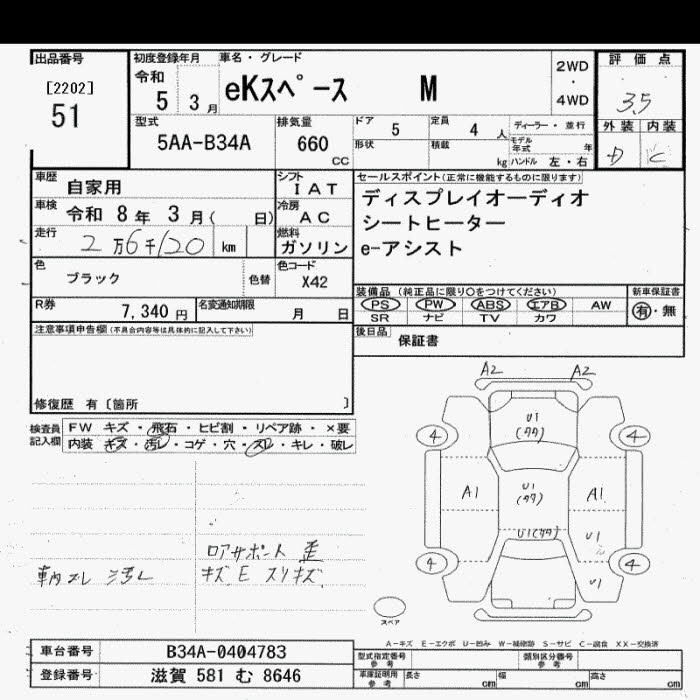 出品番号
[2202]
51
初度登録年月
令和
5 3月
車名・グレード
eKスペース M
2WD
・
4WD
評価点
3.5
外装 内装
D C
型式
5AA-B34A
排気量
660 cc
ドア 5
定員 4 人
形状
積載 kg
ディーラー・並行
モデル年式 年
ハンドル 左・右
車歴 自家用
車検 令和 8年 3月( 日)
走行 2万6千120 km
シフト IAT
冷房 AC
燃料 ガソリン
色 ブラック
色替
色コード X42
R券 7,340 円
名変通知期限 月 日
セールスポイント(正常に機能するものに限ります)
ディスプレイオーディオ
シートヒーター
e-アシスト
装備品 (純正品に限り○をつけてください)
PS PW ABS エアB AW
SR ナビ TV カワ
新車保証書
有・無
後日品 保証書
注意事項申告欄(不具合内容等は具体的に記入して下さい)
修復歴 有〔箇所 〕
検査員記入欄
FW キズ・飛石・ヒビ割・リペア跡・×要
内装 キズ・汚レ・コゲ・穴・スレ・キレ・破レ
ロアサポート 歪
車内スレ 汚レ
キズ E スリキズ
A2 A2
U1
(タタ)
4 4
A1
U1
(タタ)
A1
U1(タタ)
U1
4 4
U1
スペア
A-キズ E-エクボ U-凹み W-補修跡 S-サビ C-腐食 XX-交換済
車台番号 B34A-0404783
登録番号 滋賀 581 む 8646
型式指定番号 参考
類別区分番号 参考
車庫証明用 参考
長さ cm
幅 cm
高さ cm